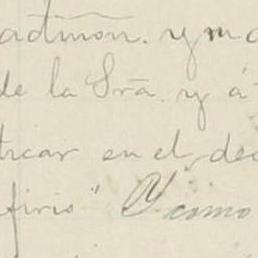 admon. y m
de la Srã. y á
ticar en el de
firio" Y como